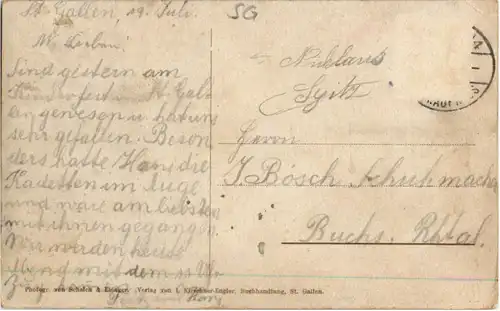 St. Gallen, 19. Juli.
SG
M. Lieben!
Sind gestern am
Kinderfest in St. Gall-
en gewesen u hat uns
sehr gefallen. Beson-
ders hatte Hans die
Kadetten im Auge
und wäre am liebsten
mit ihnen gegangen
Wir werden heute
Abend mit dem
Zug
Herrn
J. Bösch, Schuhmacher
Buchs, Rhtal.
Photogr. von Schalch & Ebinger. (Verlag von I. Kirschner-Engler, Buchhandlung, St. Gallen.